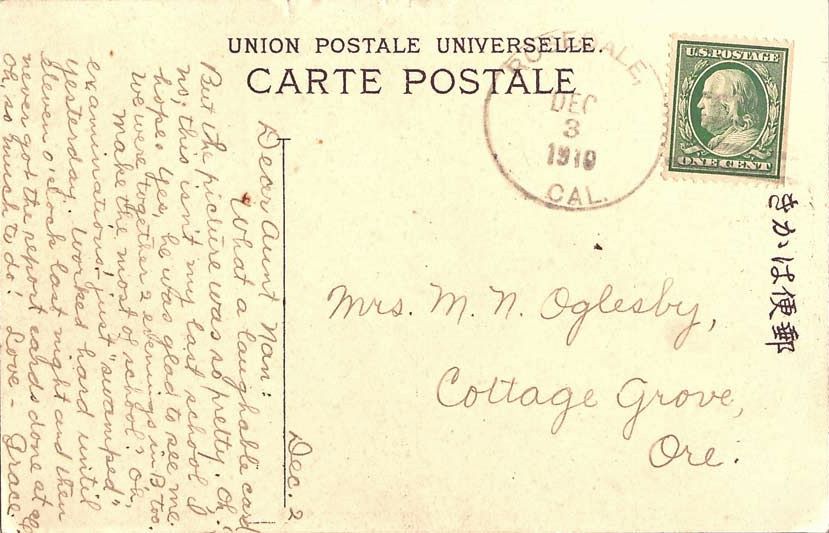 UNION POSTALE UNIVERSELLE.
CARTE POSTALE
ROSEDALE,
DEC
3
1910
CAL.
U.S. POSTAGE
ONE CENT
郵便はがき
Mrs. M. N. Oglesby,
Cottage Grove,
Ore.
Dec. 2
Dear Aunt Nan:
What a laughable card
But the picture was so pretty. Oh!
no; this isn't my last school I
hope. Yes, he was glad to see me.
We were together 2 evenings in B too.
Make the most of school? Oh,
examinations! just "swamped"
yesterday. Worked hard until
eleven o'clock last night and then
never got the report cards done at all
Oh, so much to do! Love - Grace.